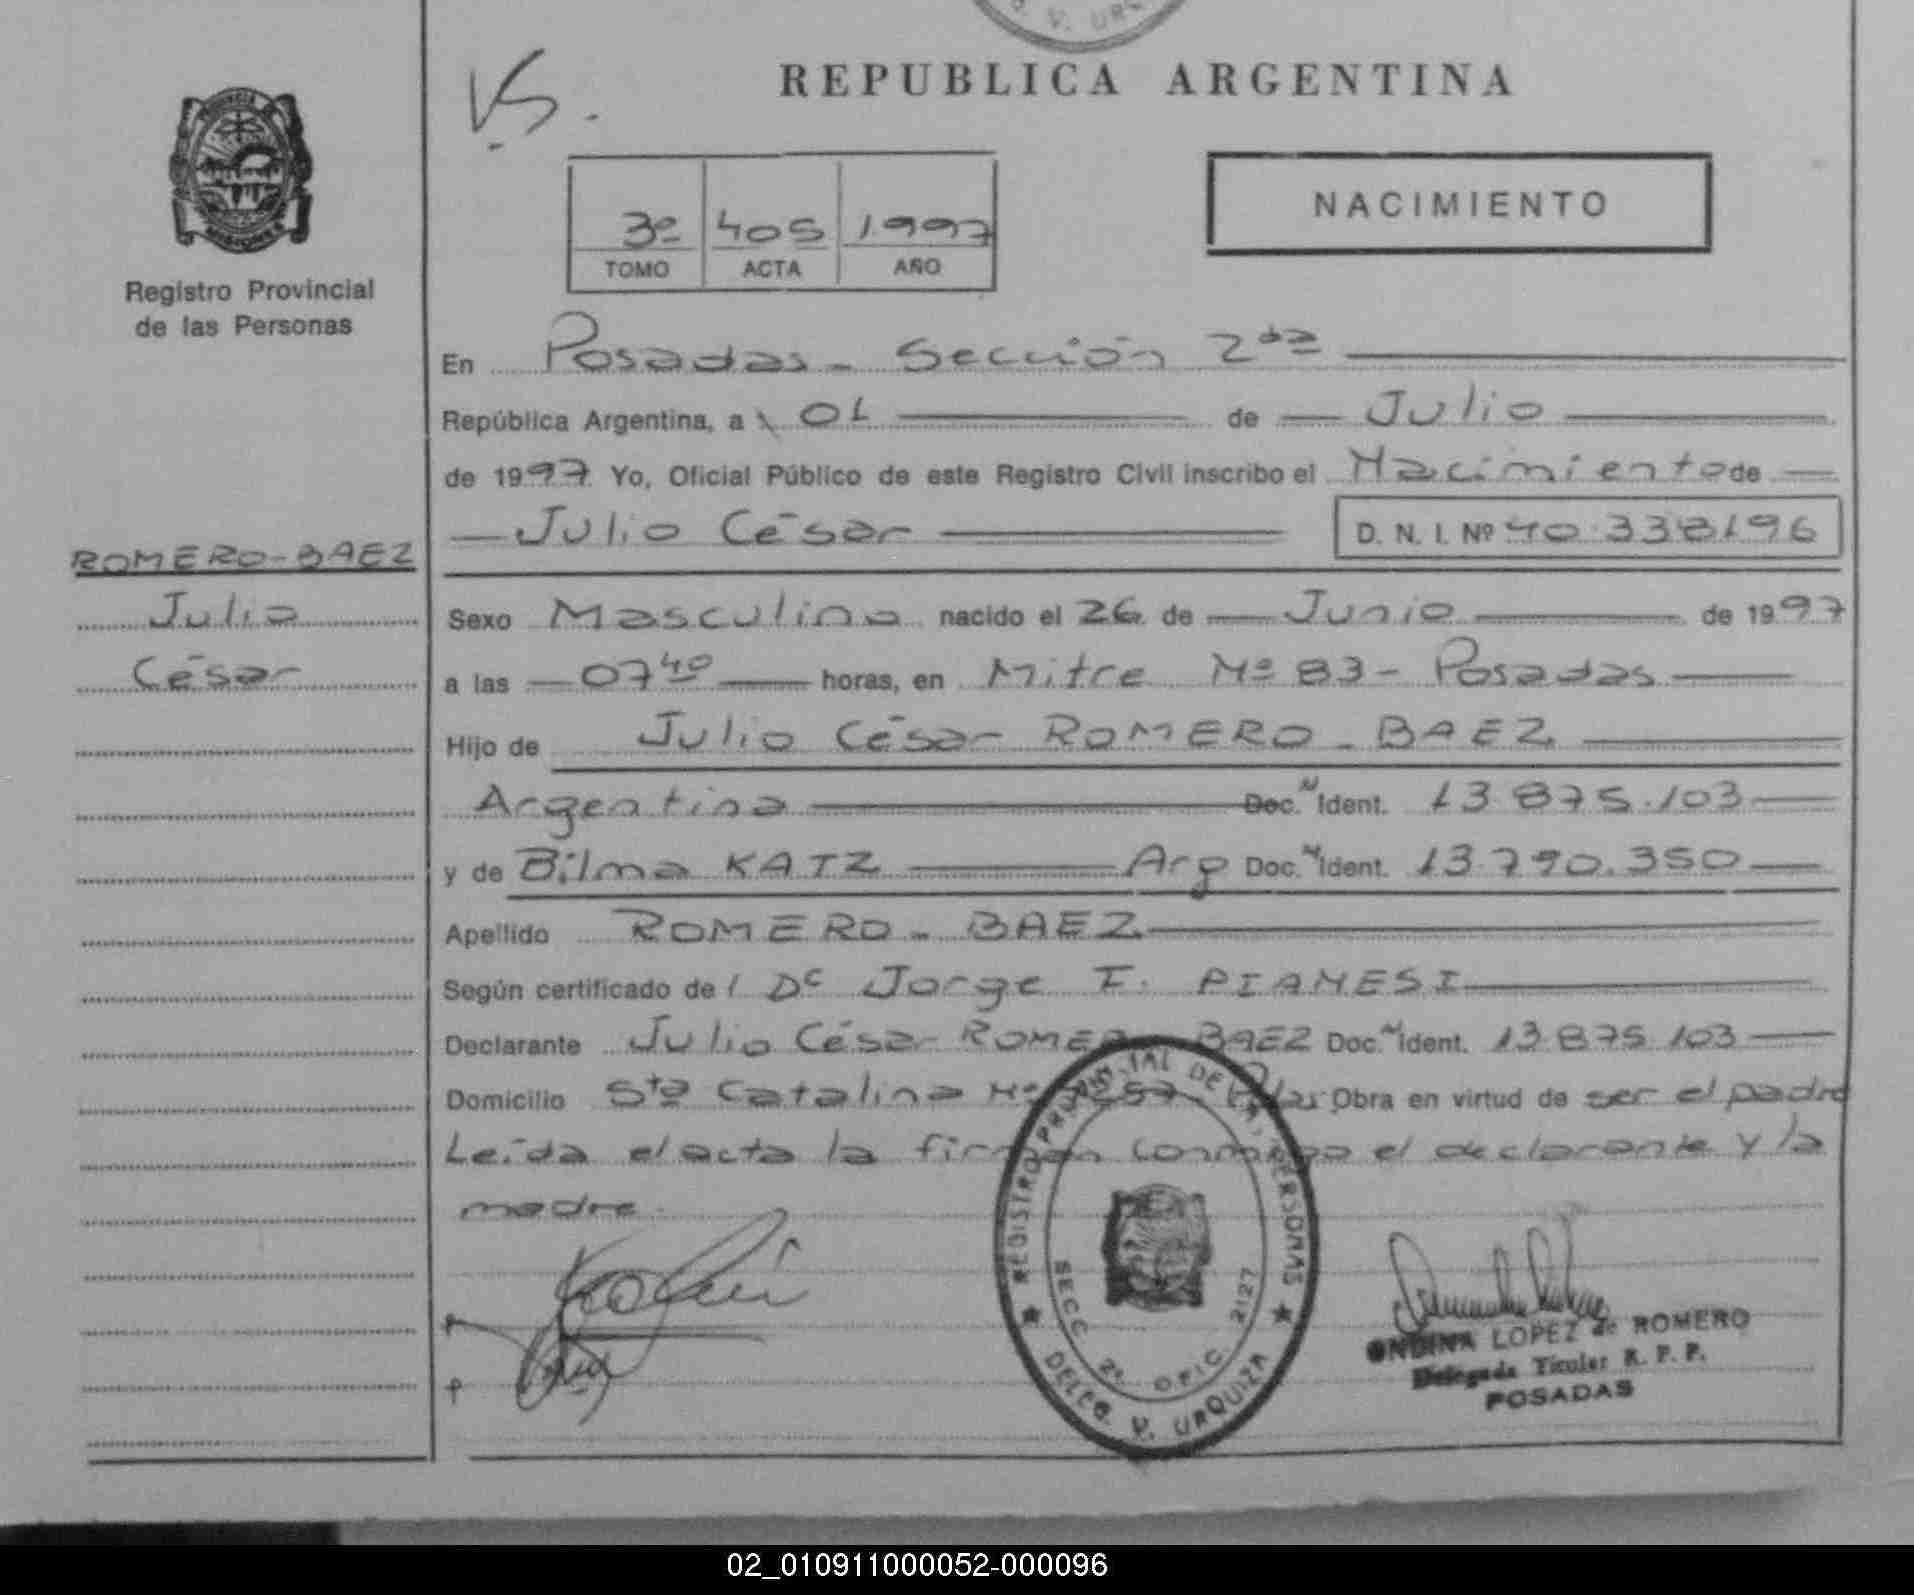 V. URQ
VS.
REPUBLICA ARGENTINA
3º 405 1997
TOMO ACTA AÑO
NACIMIENTO
PROVINCIA DE
MISIONES
Registro Provincial
de las Personas
En Posadas - Sección 2da
República Argentina, a 01 de Julio
de 1997 Yo, Oficial Público de este Registro Civil inscribo el Nacimiento de
Julio César D. N. I. Nº 40.338.196
ROMERO-BAEZ
Julio
César
Sexo Masculino nacido el 26 de Junio de 1997
a las 07 40 horas, en Mitre Nº 83 - Posadas
Hijo de Julio César ROMERO - BAEZ
Argentina Doc. N Ident. 13.875.103
y de Bilma KATZ Arg Doc. N Ident. 13.790.350
Apellido ROMERO - BAEZ
Según certificado de Dr Jorge F. PIANESI
Declarante Julio César ROMERO BAEZ Doc. N Ident. 13.875.103
Domicilio Sta Catalina Nº Pdas Obra en virtud de ser el padre
Leida el acta la firman conmigo el declarante y la
madre.
REGISTRO PROVINCIAL DE LAS PERSONAS
SECC. 2ª OFIC. 2127
DELEG. V. URQUIZA
ONDINA LOPEZ de ROMERO
Delegada Titular R. P. P.
POSADAS
02_010911000052-000096